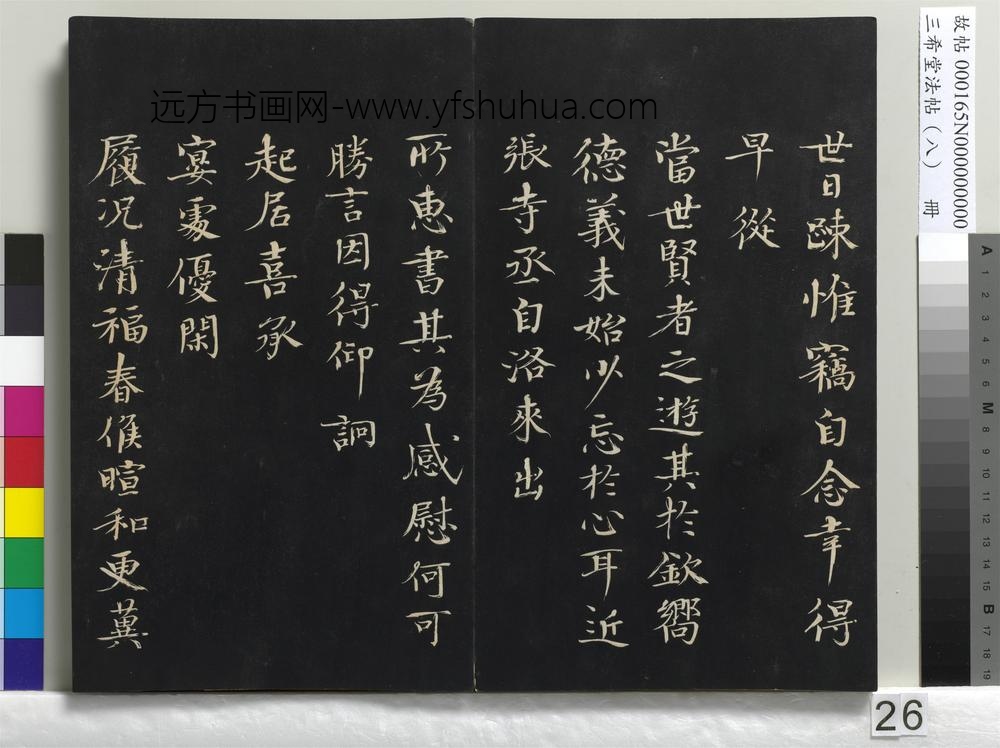 世日疎惟竊自念幸得
早從
當世賢者之遊其於欽嚮
德義未始少忘於心耳近
張寺丞自洛來出
所惠書其為感慰何可
勝言因得仰詗
起居喜承
宴處優閑
履况清福春候暄和更冀
远方书画网-www.yfshuhua.com
故帖 000165N000000000
三希堂法帖（八） 冊
26
A 1 2 3 4 5 6 M 8 9 10 11 12 13 14 15 B 17 18 19